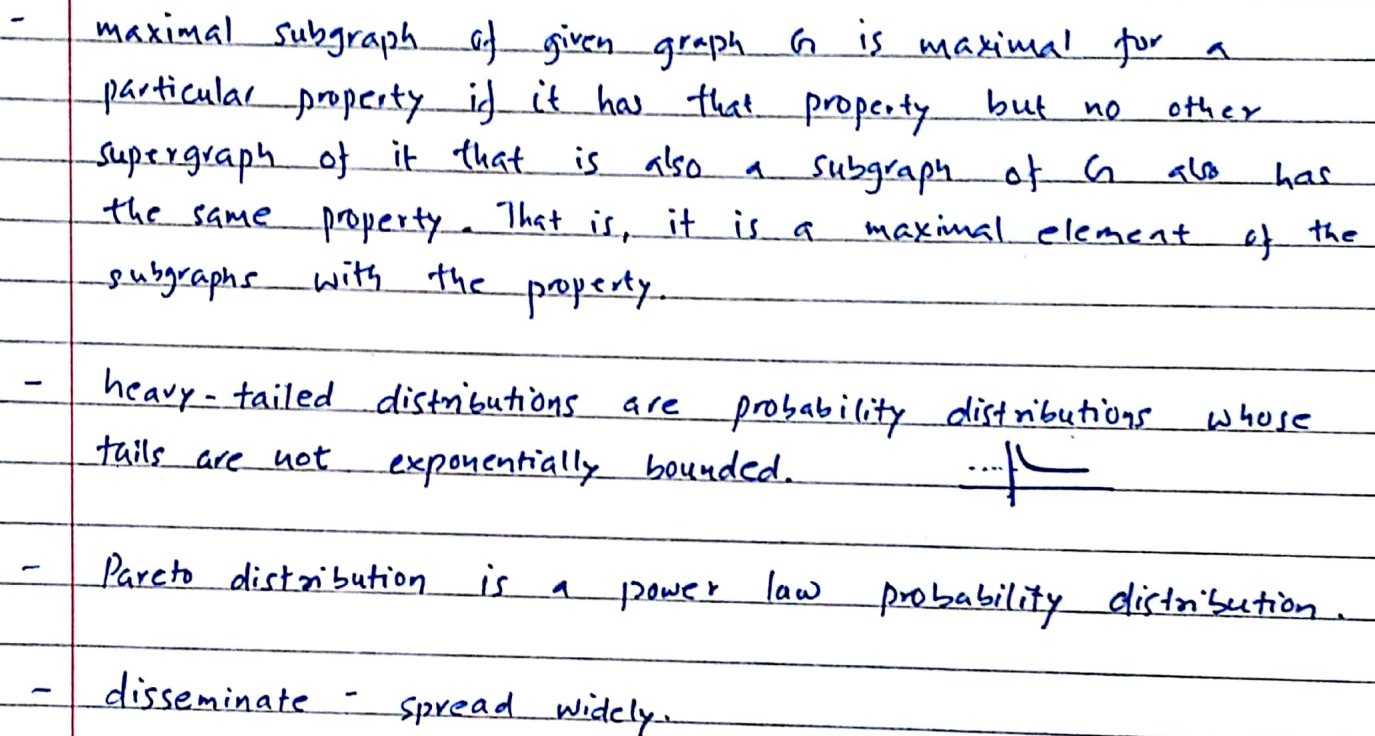 - maximal subgraph of given graph G is maximal for a
particular property if it has that property but no other
supergraph of it that is also a subgraph of G also has
the same property. That is, it is a maximal element of the
subgraphs with the property.
- heavy-tailed distributions are probability distributions whose
tails are not exponentially bounded.
- Pareto distribution is a power law probability distribution.
- disseminate - spread widely.